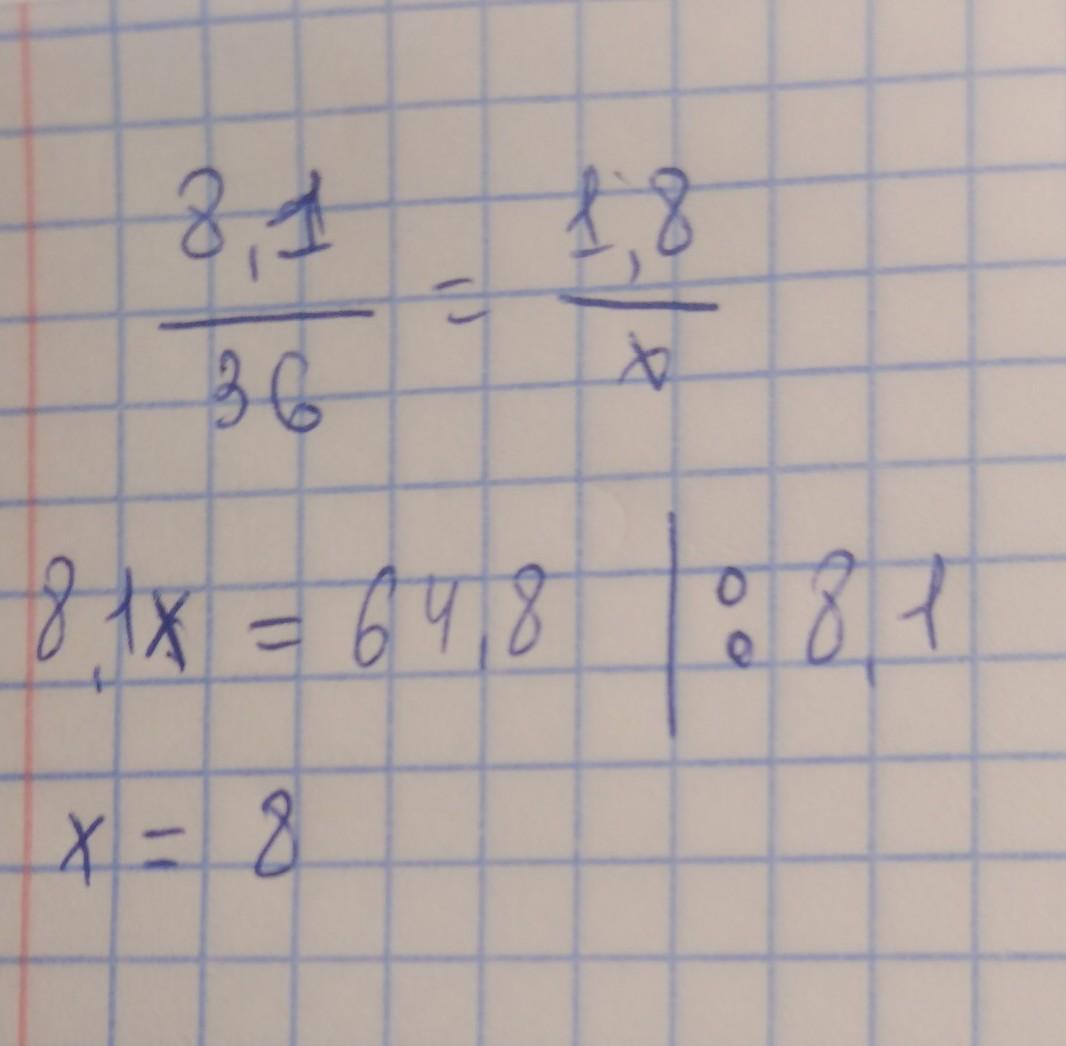 8,1/36 = 1,8/x
8,1x = 64,8 | : 8,1
x = 8